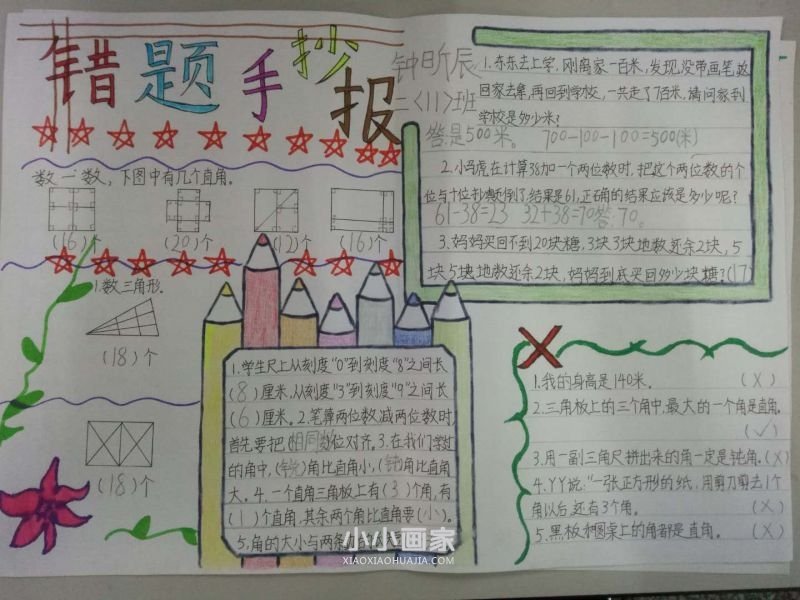 错题手抄报
钟昕辰
二〈11〉班
数一数，下图中有几个直角。
(16)个
(20)个
(12)个
(16)个
1.数三角形.
(18)个
(18)个
1.学生尺上从刻度"0"到刻度"8"之间长
(8)厘米，从刻度"3"到刻度"9"之间长
(6)厘米。2.笔算两位数减两位数时,
首先要把(相同数)位对齐。3.在我们学过
的角中,(锐)角比直角小,(钝)角比直角
大。4.一个直角三角板上有(3)个角,有
(1)个直角,其余两个角比直角要(小)。
5.角的大小与两条
1.东东去上学,刚离家一百米,发现没带画笔,返
回家去拿,再回到学校,一共走了7百米,请问家到
学校是多少米?
答是500米。 700-100-100=500(米)
2.小马虎在计算38加一个两位数时,把这个两位数的个
位与十位抄颠倒了,结果是61,正确的结果应该是多少呢?
61-38=23 32+38=70答:70。
3.妈妈买回不到20块糖,3块3块地数还余2块,5
块5块地数还余2块,妈妈到底买回多少块糖?(17)
1.我的身高是140米。 (X)
2.三角板上的三个角中,最大的一个角是直角.
(✓)
3.用一副三角尺拼出来的角一定是钝角.(X)
4.丫丫说:"一张正方形的纸,用剪刀剪去1个
角以后,还有3个角。 (X)
5.黑板和圆桌上的角都是直角。 (X)
小小画家
XIAOXIAOHUAJIA.COM